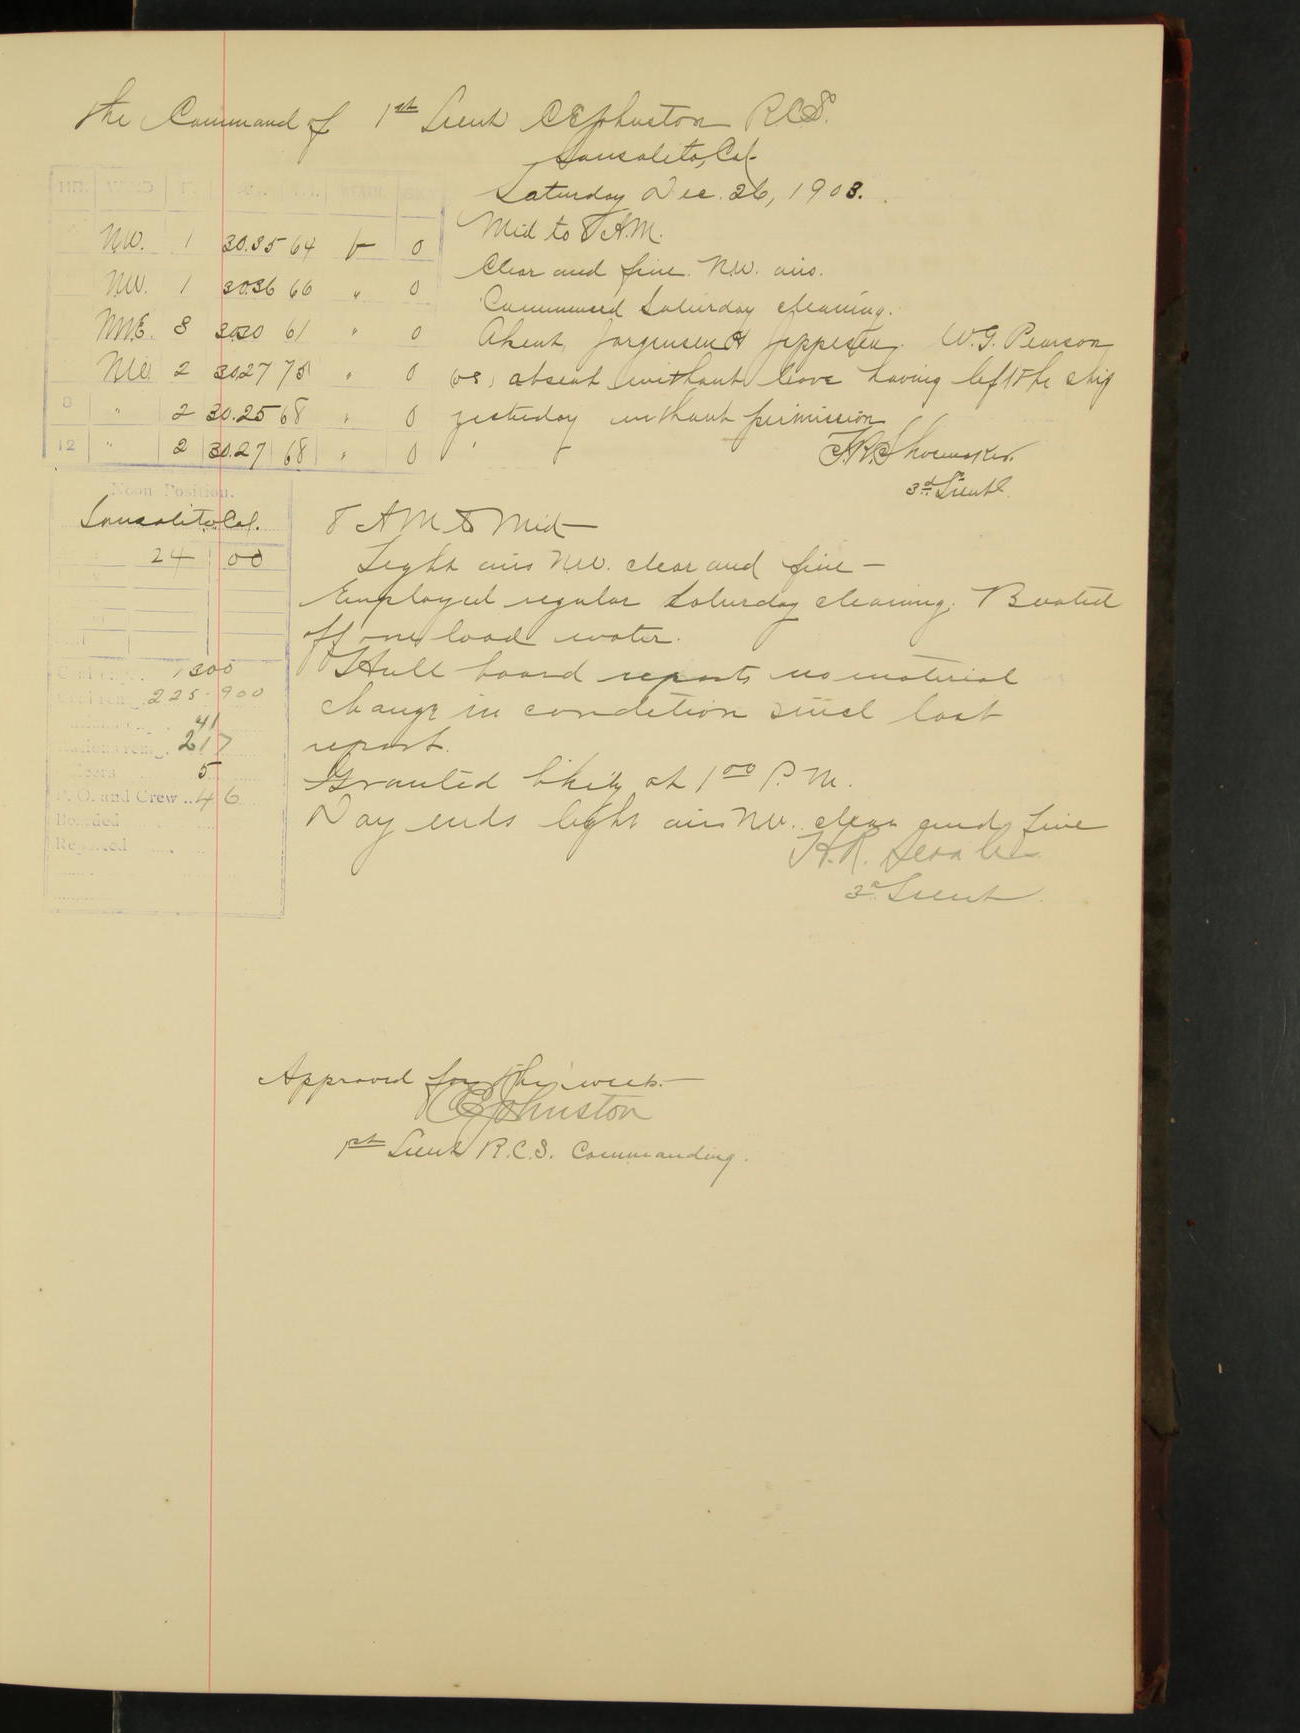 the Command of 1st Lieut C E Johnston R.C.S.
Sausalito, Cal
Saturday Dec. 26, 1903.
HR. WIND
NW. 1 30.35 64 b 0
NW. 1 30.36 66 " 0
NNE. 3 30.30 61 " 0
NW 2 30.27 75 " 0
8 " 2 30.25 68 " 0
12 " 2 30.27 68 " 0
Mid to 8 A.M.
Clear and fine. N.W. airs.
Commenced Saturday cleaning.
Absent, Jorgensen & Jeppesen. W.G. Pearson
absent without leave having left the ship
yesterday without permission
Shoemaker.
3d Lieut.
Noon Position.
Sausalito Cal.
24 00
1300
225-900
41
217
5
P. O. and Crew .. 46
Boarded
Reported
8 AM to Mid
Light airs NW. clear and fine —
Employed regular Saturday cleaning. Boated
off one load water.
Hull board reports no material
change in condition since last
report.
Granted liberty at 1 00 P.M.
Day ends light airs NW. clear and fine
H.R.
3d Lieut
Approved for this week. —
C E Johnston
1st Lieut R.C.S. Commanding.